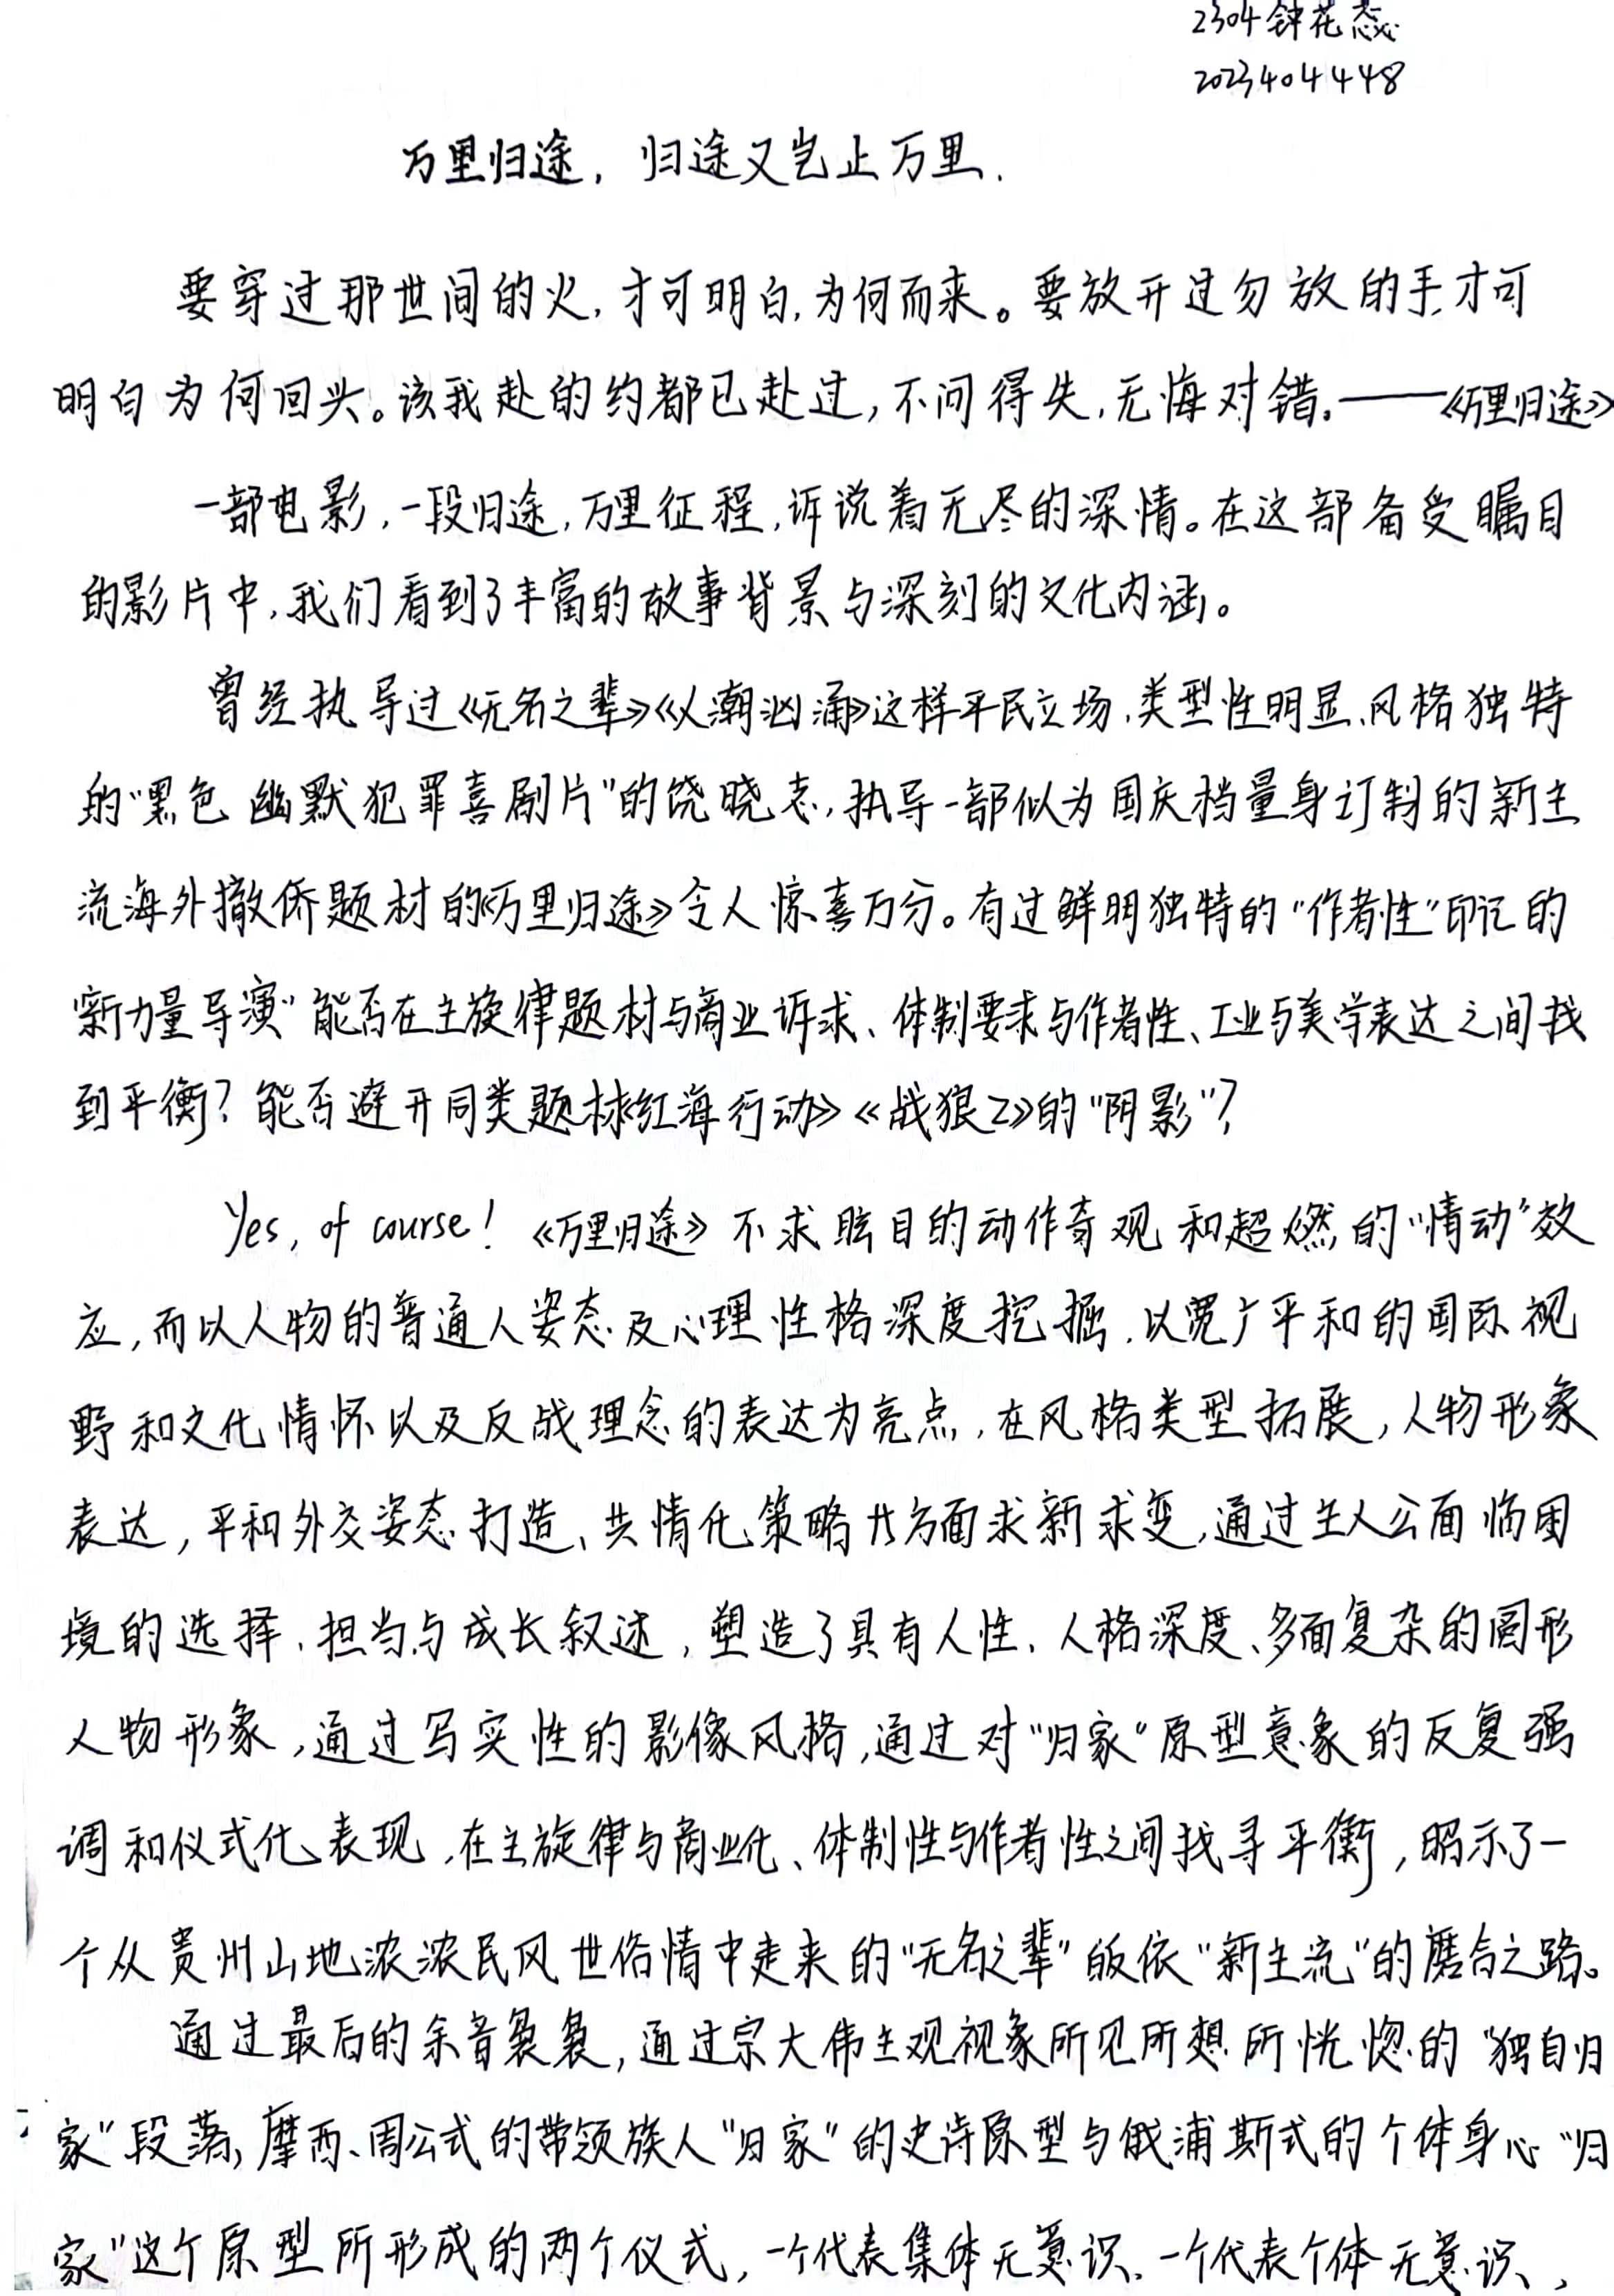 2304 钟花蕊
2023404448
万里归途，归途又岂止万里.
要穿过那世间的火,才可明白,为何而来。要放开过勿放的手,才可
明白为何回头。该我赴的约都已赴过,不问得失,无悔对错。——《万里归途》
一部电影,一段归途,万里征程,诉说着无尽的深情。在这部备受瞩目
的影片中,我们看到了丰富的故事背景与深刻的文化内涵。
曾经执导过《无名之辈》《人潮汹涌》这样平民立场、类型性明显、风格独特
的“黑色幽默犯罪喜剧片”的饶晓志,执导一部似为国庆档量身订制的新主
流海外撤侨题材的《万里归途》令人惊喜万分。有过鲜明独特的“作者性”印记的
“新力量导演”能否在主旋律题材与商业诉求、体制要求与作者性、工业与美学表达之间找
到平衡?能否避开同类题材《红海行动》《战狼2》的“阴影”?
Yes, of course!《万里归途》不求眩目的动作奇观和超燃的“情动”效
应,而以人物的普通人姿态及心理性格深度挖掘,以宽广平和的国际视
野和文化情怀以及反战理念的表达为亮点,在风格类型拓展,人物形象
表达,平和外交姿态打造、共情化策略方面求新求变,通过主人公面临困
境的选择、担当与成长叙述,塑造了具有人性、人格深度、多面复杂的圆形
人物形象,通过写实性的影像风格,通过对“归家”原型意象的反复强
调和仪式化表现,在主旋律与商业化、体制性与作者性之间找寻平衡,昭示了一
个从贵州山地浓浓民风世俗情中走来的“无名之辈”皈依“新主流”的磨合之路。
通过最后的余音袅袅,通过宗大伟主观视象所见所想所恍惚的“独自归
家”段落,摩西、周公式的带领族人“归家”的史诗原型与俄浦斯式的个体身心“归
家”这个原型所形成的两个仪式,一个代表集体无意识、一个代表个体无意识,